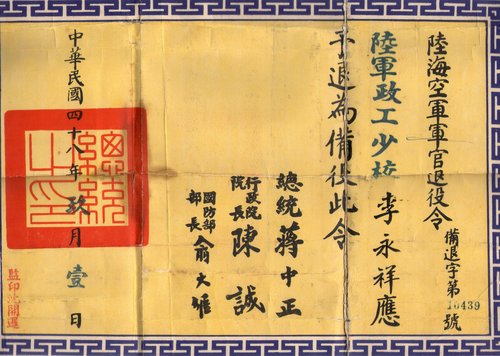 陸海空軍軍官退役令
備退字第10439號
陸軍政工少校 李永祥應
予退為備役此令
總統 蔣中正
行政院院長 陳誠
國防部部長 俞大維
總統之印
中華民國四十八年玖月壹日
監印沈開運